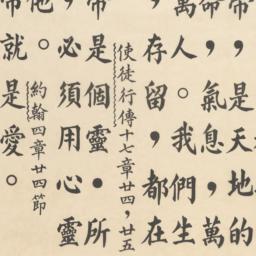 帝，是天地的
命，氣息，萬
萬人。我們生
，存留，都在
使徒行傳十七章廿四，廿五
帝是個靈．所
，必須用心靈
他。
約翰四章廿四節
帝就是愛。